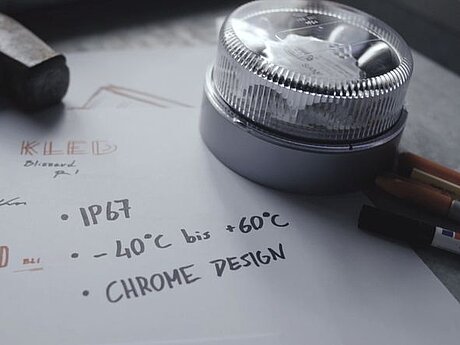 KLED
Blizzard
• IP67
• -40°C bis +60°C
• CHROME DESIGN
BLI.